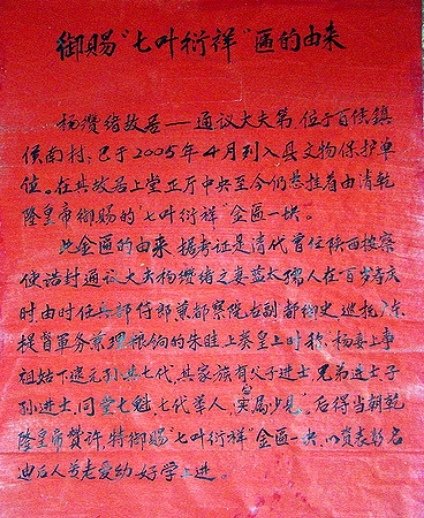 御赐"七叶衍祥"匾的由来
杨缵绪故居——通议大夫第,位于百侯镇
侯南村;已于2005年4月列入县文物保护单
位。在其故居上堂正厅中央至今仍悬挂着由清乾
隆皇帝御赐的"七叶衍祥"金匾一块。
此金匾的由来,据考证是清代曾任陕西按察
使诰封通议大夫杨缵绪之妻蓝太孺人在百岁寿庆
时,由时任兵部侍郎兼都察院右副都御史巡抚广东
提督军务兼理粮饷的朱 上奏皇上时称"杨妻上事
祖姑下逮元孙共七代,其家族有父子进士,兄弟进士子
孙进士,同堂七魁,七代举人,实属少见。后得当朝乾
隆皇帝赞许,特御赐"七叶衍祥"金匾一块,以资表彰名
后人尊老爱幼、好学上进。